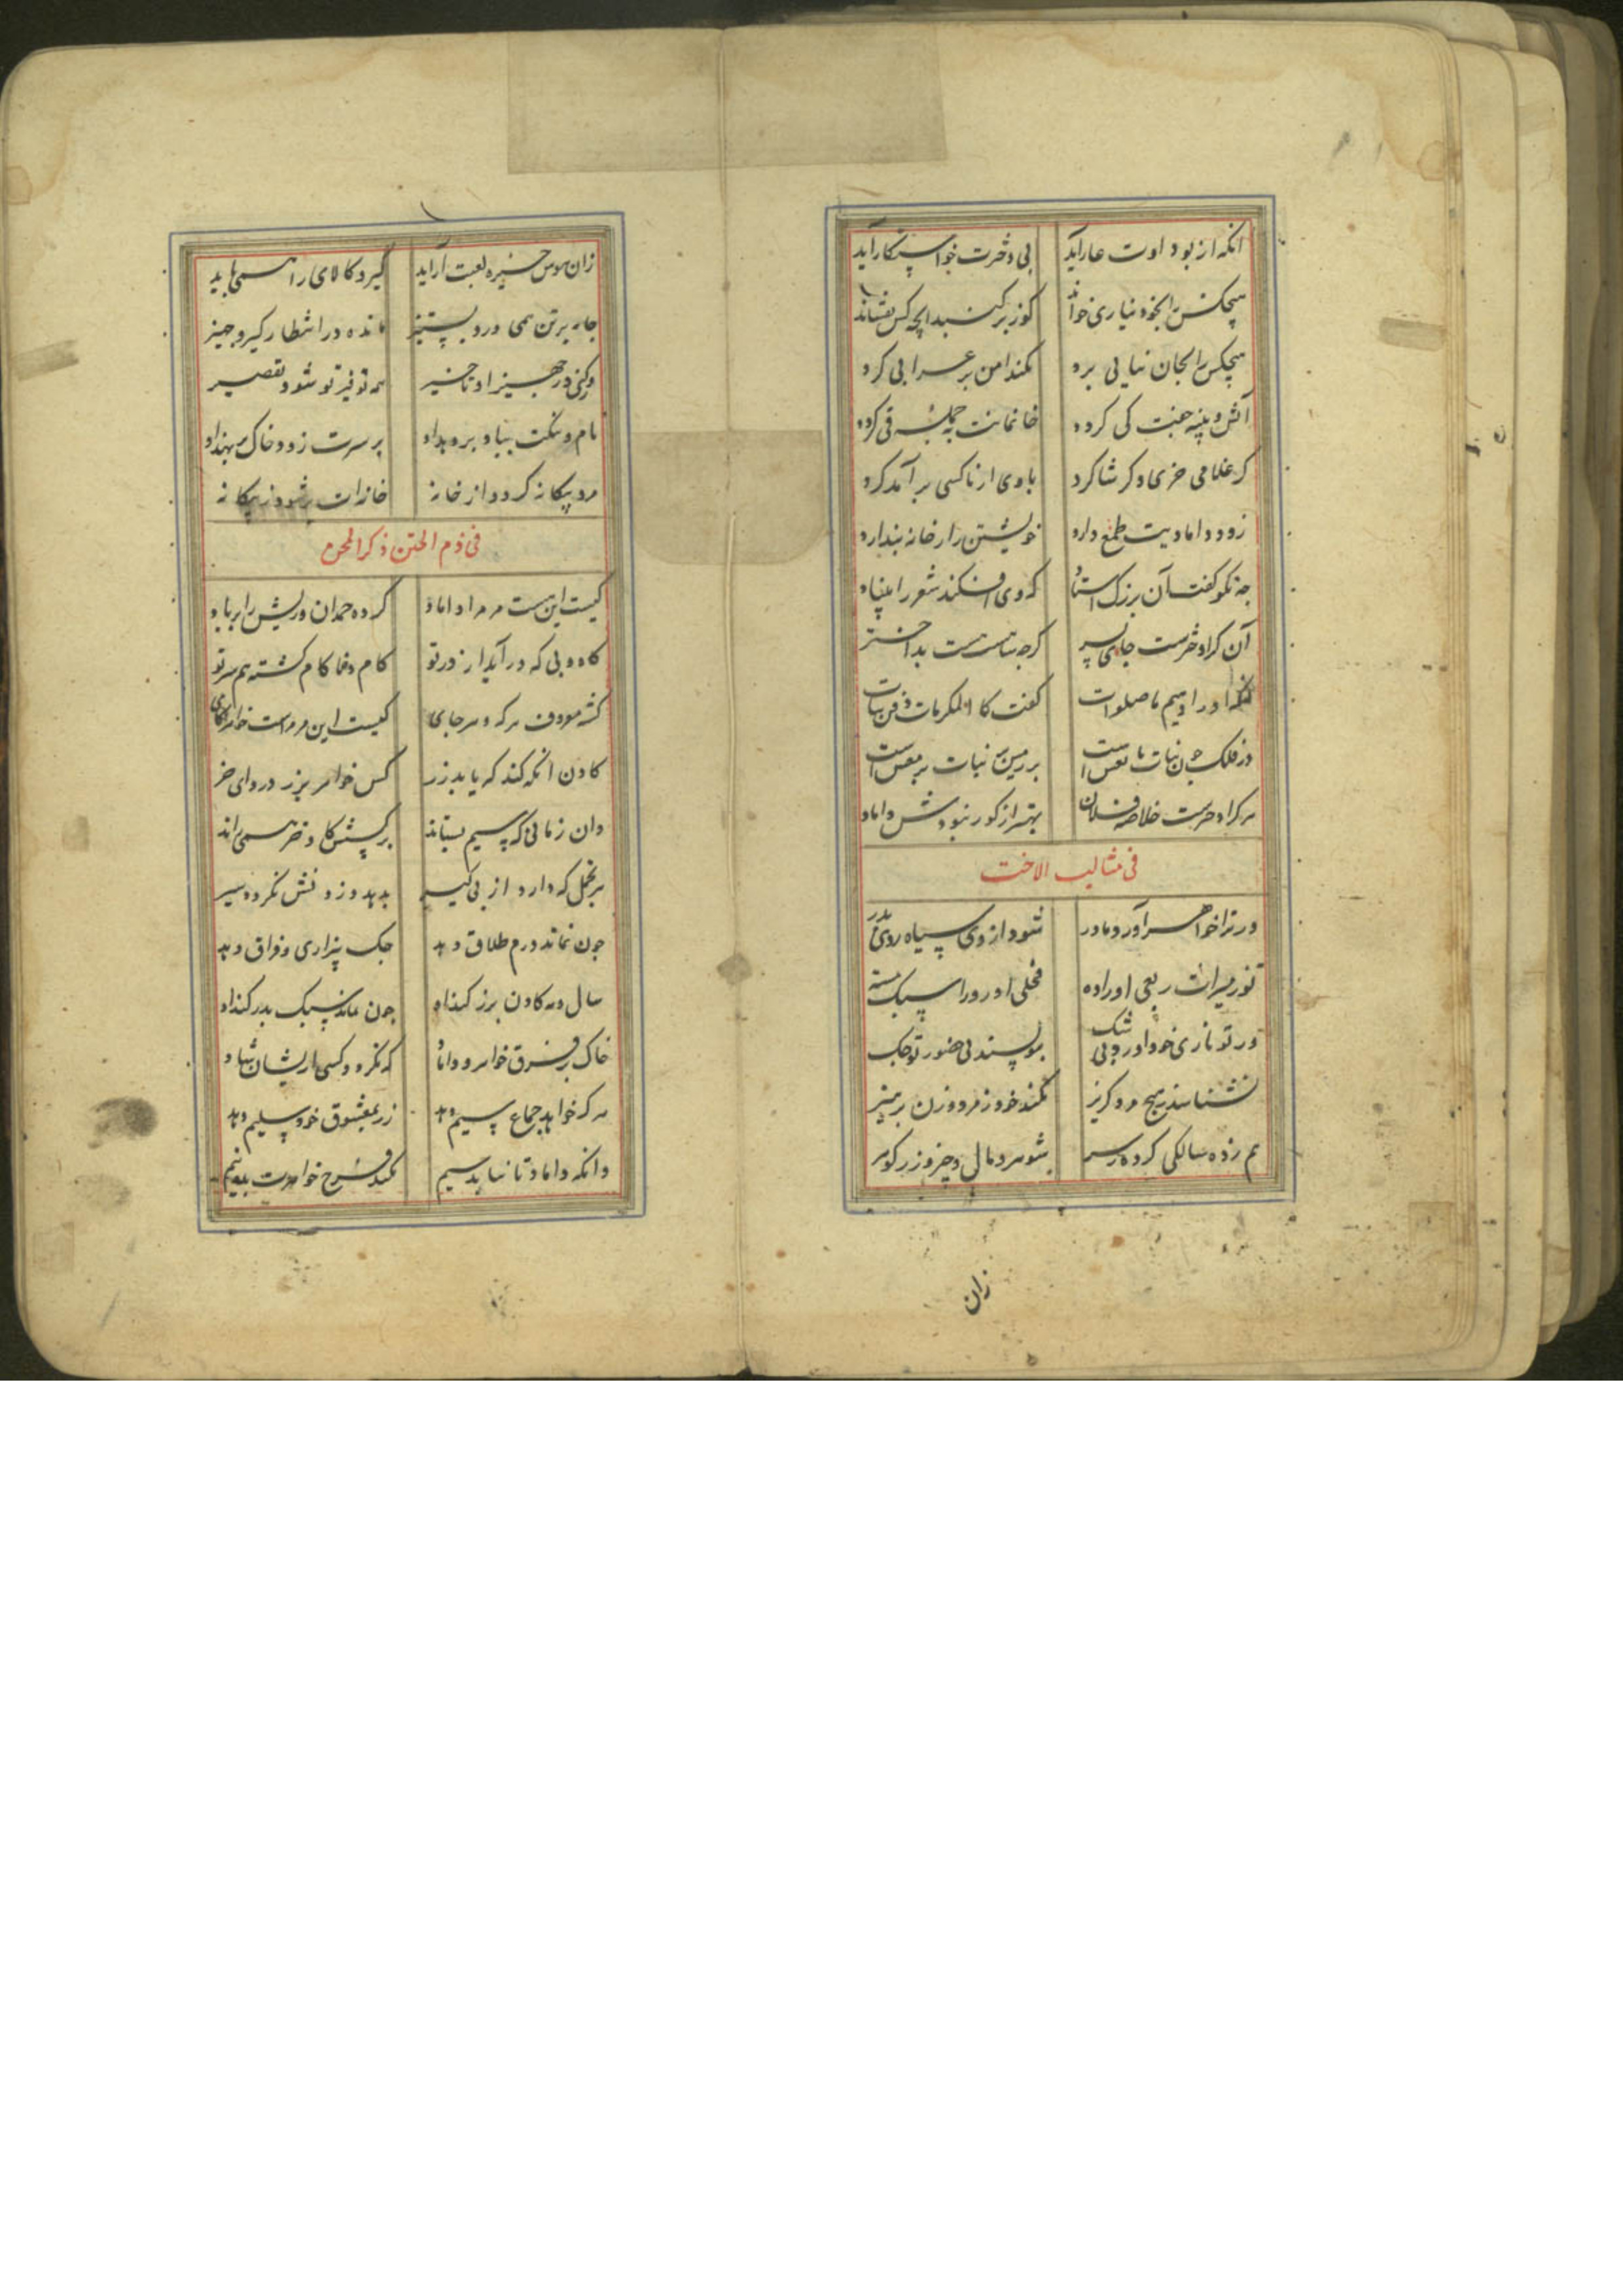 انکه از بود اوت عار آید بی دخترت خواستکار آید
هیچکس را بخود نیاری خواند کوز بر کنبد ایچه کس نفشاند
هیچکس را بجان نیایی برد نکند امن بر عرابی کرد
آتش و پنبه جفت کی کرده خانمانت جمله قی کرده
کر غلامی خری و کر شاکرد با وی از ناکسی بر آمد کرد
زود دامادیت طمع دارد خویشتن را ز خانه پندارد
چه نکو گفت آن بزرک استاد که وی افکند شعر را بنیاد
آن کرا دخترست جای پسر کرچه شاهست هست بداختر
گفت کالمکرمات دفن بنات
در فلک چون بنات با نعش است بر زمین بنات بر نعش است
هر کرا دخترست خاصه فلان بهتر از کور نبودش داماد
فی مثالب الاخت
ور ترا خواهر آورد مادر شود از وی سیاه روی پدر
تو ز میراث ربعی او را ده فحلی او رو را سبک مسته
ور تو نازی خود آوردی بی شک بوسند بی حضور تو چک
نشناسند هیچ مرد کریز نکند خود ز مرد و زن پرهیز
هم ز ده سالکی کرده ز سر شوهر و مال و چیز و زر کوهر
زان
زان هوس خیره لعبت آراید گیرد کالای را همی باید
جار بر تن همی درد بستیز مانده در انتظار کیر و جهیز
ور کنی در جهیز او تاخیر همه توفیر تو شود تقصیر
نام و ننکت بباد بر دهد او بر سرت زود خاک بنهد او
مرد بیکانه کردد از خانه خانه‌ات پر شود ز بیکانه
فی ذم الختن ذکر المحن
کیست این هست مر مرا داماد کرده حمدان و ریش را پر باد
کاده بی که در آید از در تو کام و ناکام کشته هم سر تو
کشته معروف هر که و هر جای کیست این مر مراست خواهر کای
کادن انکه کند که یابد زر کس خواهر بزر در دای خر
وان زمانی که سیم بستاند بر کشش کا و خر همی راند
هر تجمل که دارد از بی کیر بدهد وز و نفس نکردد سیر
چون نماند درم طلاق دهد چک بیزاری و فراق دهد
سال و مه کادن بزر کند او چون نماند سبک بدر کند او
خاک بر فرق خواهر و داماد که نکردد کسی از ایشان شاد
هر که خواهد جماع سیم دهد زر بمعشوق خود سلیم دهد
وانکه داماد تا نیابد سیم نکند فرج خواهرت بدو نیم